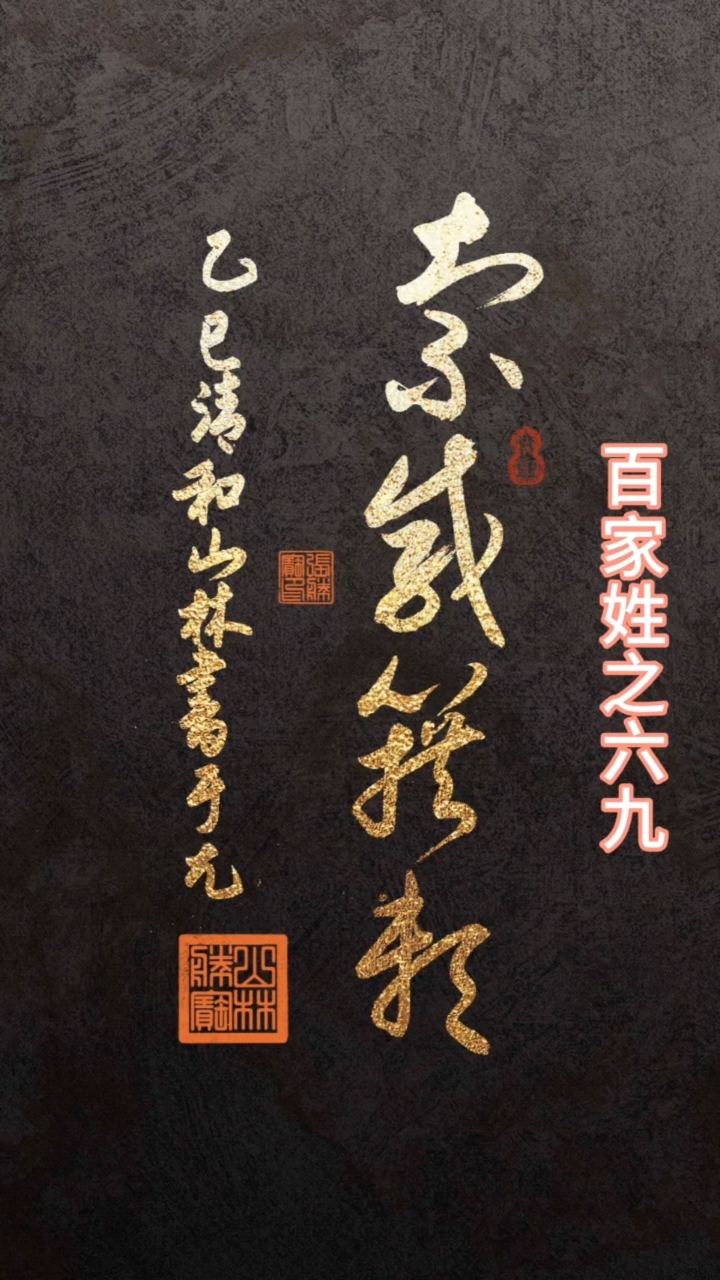 百家姓之六九
索咸籍赖
乙巳清和山林书于九